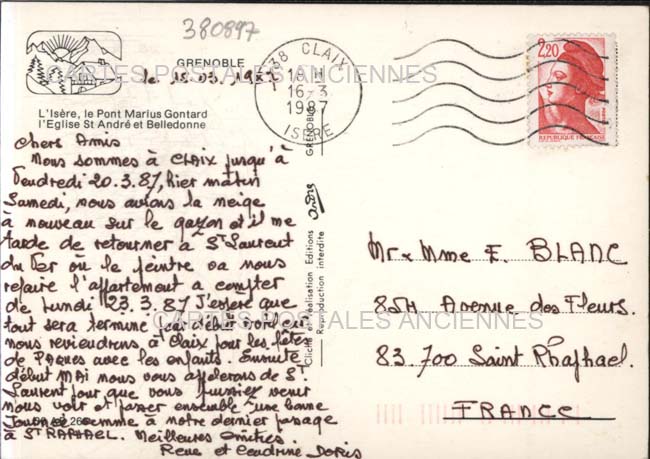 380897
GRENOBLE
L'Isère, le Pont Marius Gontard
l'Eglise St André et Belledonne
le 15.03.1987
38 CLAIX
18 H
16-3
1987
ISERE
2,20
REPUBLIQUE FRANÇAISE
CARTES POSTALES ANCIENNES
Chers Amis
Nous sommes à CLAIX jusqu'à
Vendredi 20.3.87, hier matin
Samedi, nous avions la neige
à nouveau sur le gazon et il me
tarde de retourner à St Laurent
du Var où le peintre va nous
refaire l'appartement a compter
de Lundi 23.3.87 J'espère que
tout sera terminé par début avril car
nous reviendrons à Claix pour les fêtes
de PAQUES avec les enfants. Ensuite
début MAI nous vous appelerons de St
Laurent pour que vous puissiez venir
nous voir et passer ensemble une bonne
journée comme à notre dernier passage
à St RAPHAEL. Meilleures Amitiés.
Rene et
DORIS
Cliché et réalisation Editions André
Reproduction interdite
GRENOBLE
Mr x Mme E. BLANC
854 Avenue des Fleurs.
83.700 Saint Raphael.
FRANCE
CARTES POSTALES ANCIENNES